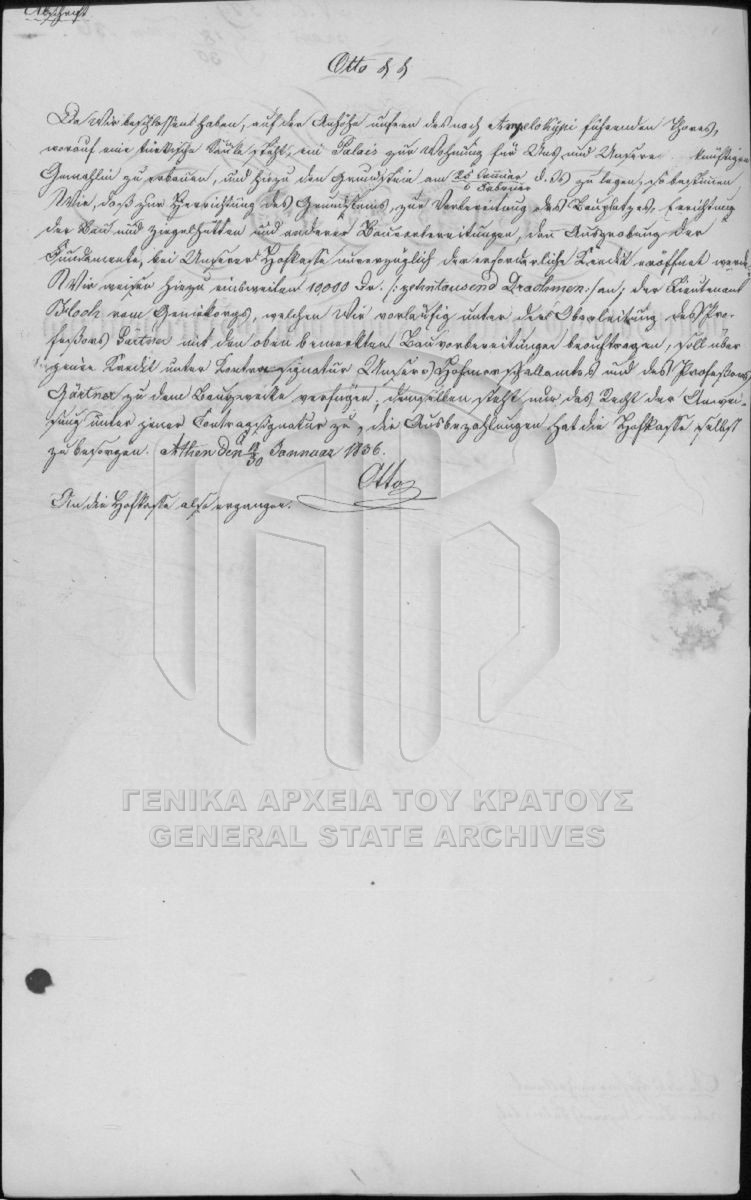 Abschrift
Otto &. &.
Da Wir beschlossen haben, auf der Anhöhe unfern des nach Ampelokipi führenden Thores,
worauf eine türkische Säule steht, ein Palais zur Wohnung für Uns und Unsere künftige
Gemahlin zu erbauen, und hiezu den Grundstein am 25 Januar / 6 Februar d. Js zu legen, so bestimmen
Wir, daß zur Herrichtung des Grundsteins, zur Vorbereitung des Bauplatzes, Errichtung
der Bau und Ziegelhütten und anderer Bauvorbereitungen, dann Ausgrabung der
Fundamente, bei Unserer Hofkasse unverzüglich der erforderliche Credit eröffnet werde.
Wir weisen hiezu einstweilen 10,000 Dr. /: zehntausend Drachmen :/ an; der Lieutenant
Hoch vom Geniekorps, welchen Wir vorläufig unter der Oberleitung des Pro-
fessors Gärtner mit den oben bemerkten Bauvorbereitungen beauftragen, soll über
jenen Credit unter Contrasignatur Unseres Hofmarschallamtes und des Professors
Gärtner zu dem Bauzwecke verfügen, demselben steht nur das Recht der Anwei-
sung unter jener Contrasignatur zu, die Ausbezahlungen hat die Hofkasse selbst
zu besorgen. Athen den 18/30 Januar 1836.
Otto
An die Hofkasse also ergangen.
ΓΕΝΙΚΑ ΑΡΧΕΙΑ ΤΟΥ ΚΡΑΤΟΥΣ
GENERAL STATE ARCHIVES